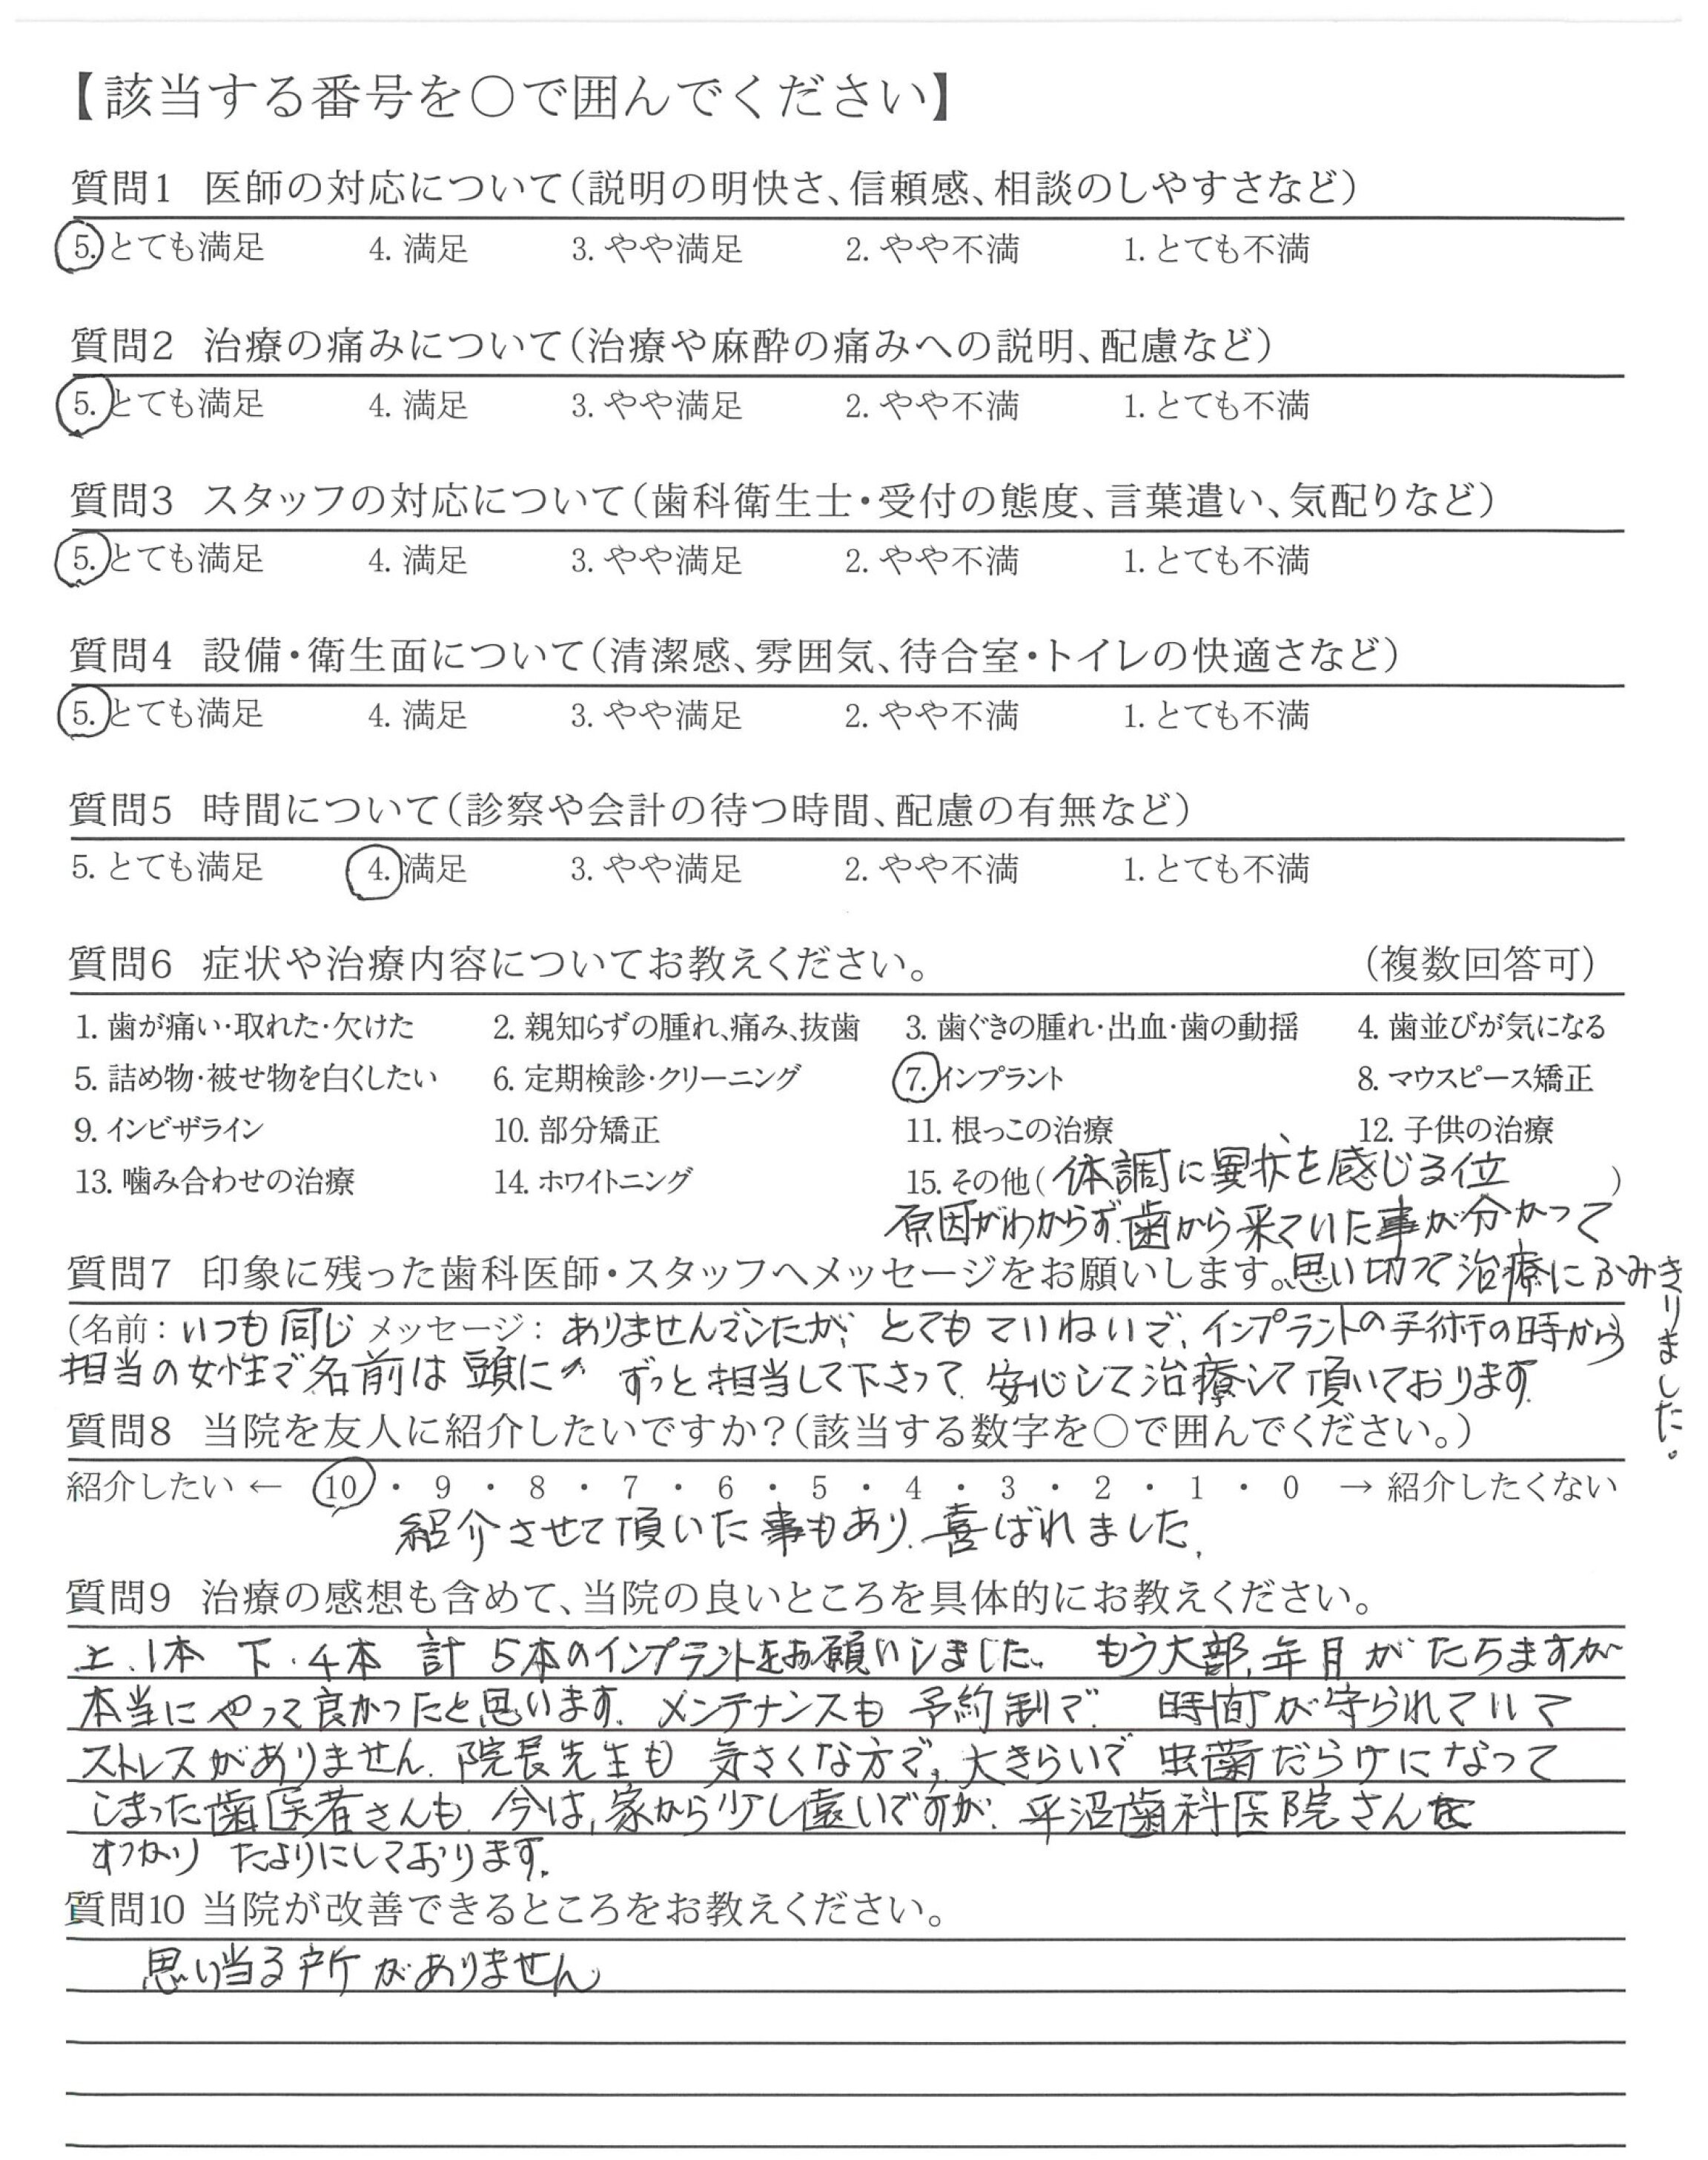 【該当する番号を○で囲んでください】
質問1 医師の対応について（説明の明快さ、信頼感、相談のしやすさなど）
5. とても満足 4. 満足 3. やや満足 2. やや不満 1. とても不満
質問2 治療の痛みについて（治療や麻酔の痛みへの説明、配慮など）
5. とても満足 4. 満足 3. やや満足 2. やや不満 1. とても不満
質問3 スタッフの対応について（歯科衛生士・受付の態度、言葉遣い、気配りなど）
5. とても満足 4. 満足 3. やや満足 2. やや不満 1. とても不満
質問4 設備・衛生面について（清潔感、雰囲気、待合室・トイレの快適さなど）
5. とても満足 4. 満足 3. やや満足 2. やや不満 1. とても不満
質問5 時間について（診察や会計の待つ時間、配慮の有無など）
5. とても満足 4. 満足 3. やや満足 2. やや不満 1. とても不満
質問6 症状や治療内容についてお教えください。 （複数回答可）
1. 歯が痛い・取れた・欠けた 2. 親知らずの腫れ、痛み、抜歯 3. 歯ぐきの腫れ・出血・歯の動揺 4. 歯並びが気になる
5. 詰め物・被せ物を白くしたい 6. 定期検診・クリーニング 7. インプラント 8. マウスピース矯正
9. インビザライン 10. 部分矯正 11. 根っこの治療 12. 子供の治療
13. 噛み合わせの治療 14. ホワイトニング 15. その他（体調に異状を感じる位 ）
原因がわからず、歯から来ていた事が分かって
質問7 印象に残った歯科医師・スタッフへメッセージをお願いします。思い切って治療にふみき
りました。
（名前：いつも同じ メッセージ：ありませんでしたが、とてもていねいで、インプラントの手術の時から
担当の女性で名前は頭に ずっと担当して下さって、安心して治療して頂いております。
質問8 当院を友人に紹介したいですか？（該当する数字を○で囲んでください。）
紹介したい ← 10 ・ 9 ・ 8 ・ 7 ・ 6 ・ 5 ・ 4 ・ 3 ・ 2 ・ 1 ・ 0 → 紹介したくない
紹介させて頂いた事もあり、喜ばれました。
質問9 治療の感想も含めて、当院の良いところを具体的にお教えください。
上、1本 下、4本 計 5本のインプラントをお願いしました。もう大部、年月がたちますが
本当にやって良かったと思います。メンテナンスも予約制で、時間が守られていて
ストレスがありません。院長先生も気さくな方で、大きらいで虫歯だらけになって
しまった歯医者さんも、今は、家から少し遠いですが、平沼歯科医院さんを
すっかりたよりにしております。
質問10 当院が改善できるところをお教えください。
思い当る所がありません